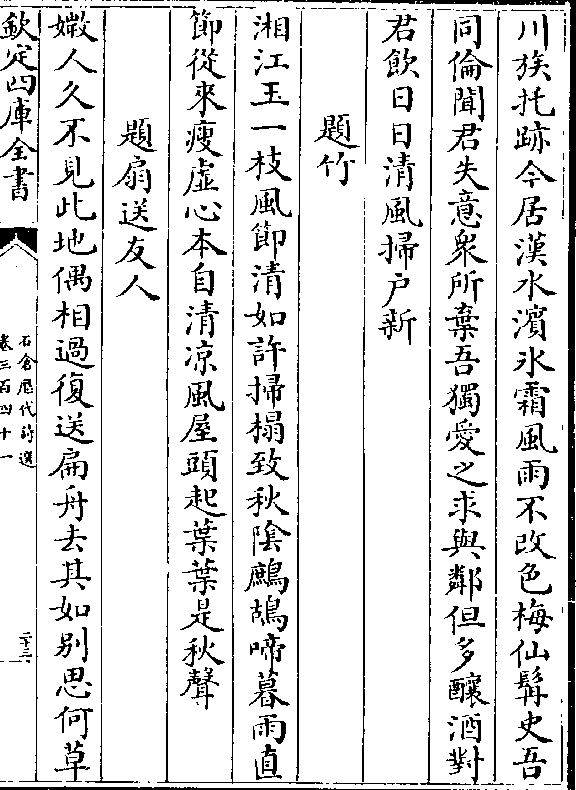 川族托跡今居漢水濱氷霜風雨不改色梅仙髯史吾
同倫聞君失意衆所棄吾獨愛之求與鄰但多釀酒對
君飲日日清風掃户新
題竹
湘江玉一枝風節清如許掃榻致秋陰鷓鴣啼暮雨直
節從來瘦虛心本自清凉風屋頭起葉葉是秋聲
題扇送友人
媺人久不見此地偶相過復送扁舟去其如別思何草
欽定四庫全書
石倉歷代詩選
卷三百四十一
二十三